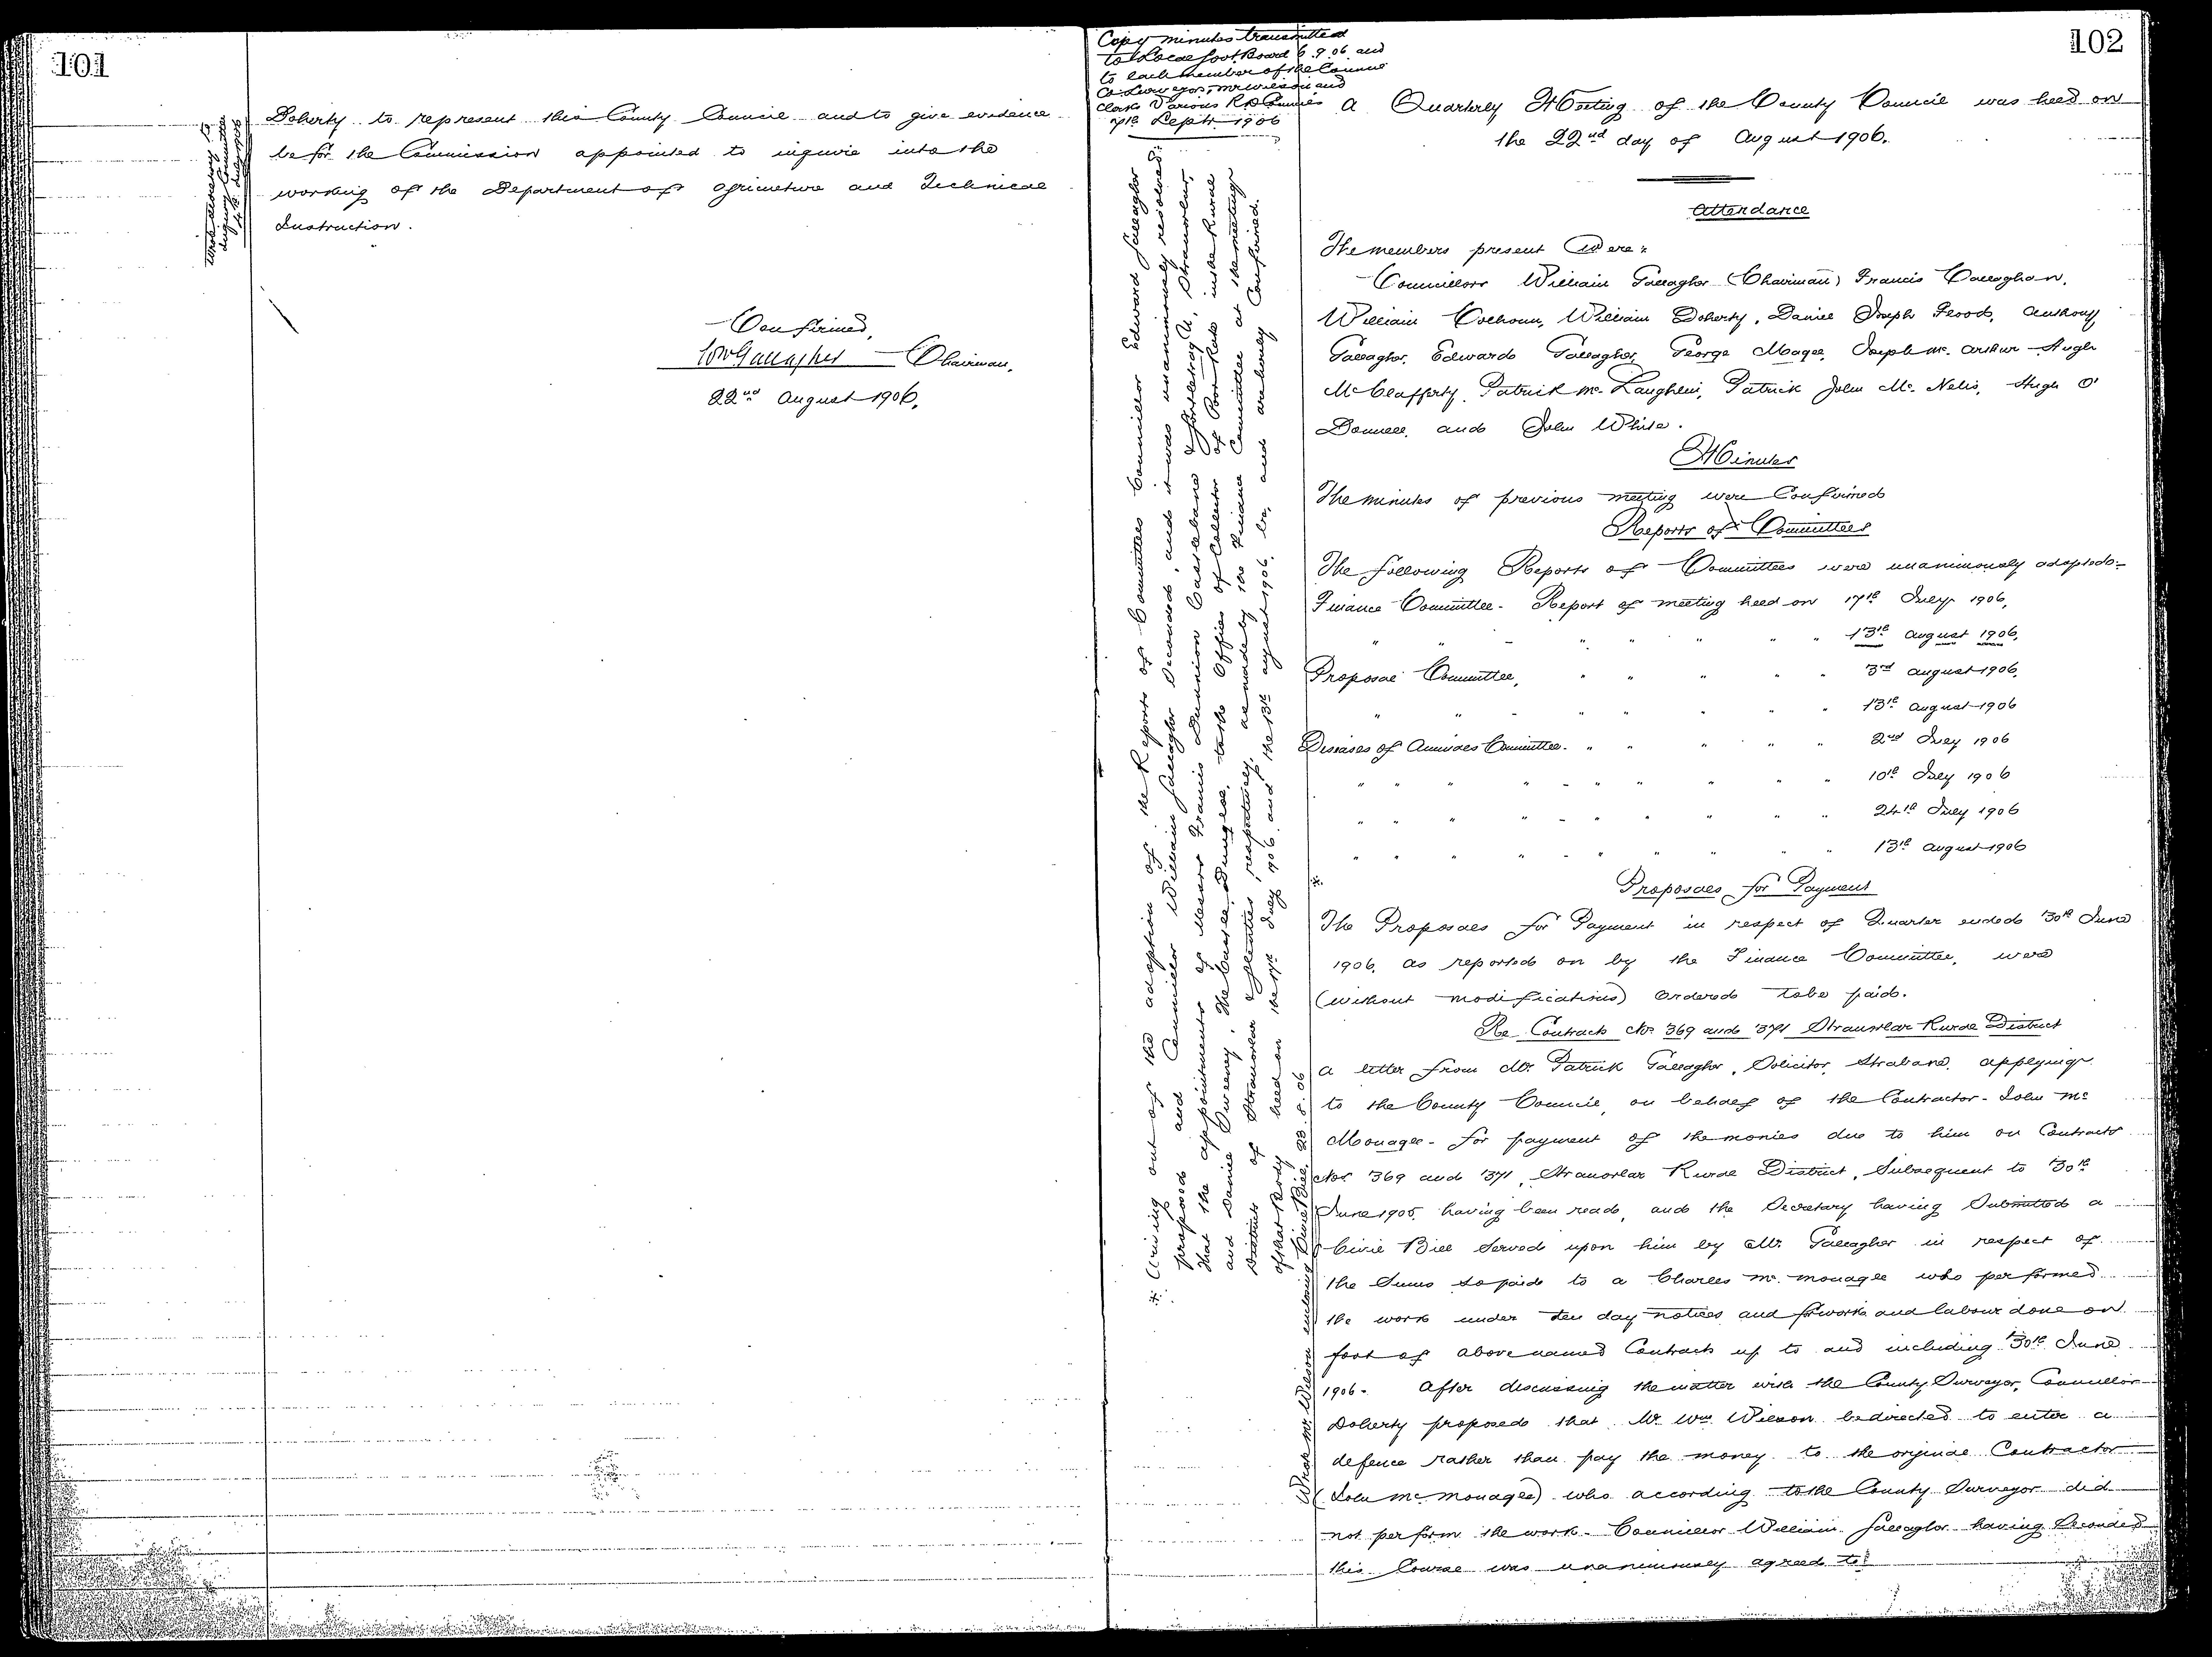 101
Doherty to represent this County Council and to give evidence
befor the Commission appointed to inquire into the
working of the Department of Agriculture and Technical
Instruction.
Confirmed,
Wm Gallagher Chairman.
22nd August 1906.
102
Copy minutes transmitted
to Local Govt. Board 6.9.06 and
to each member of the Council
Co. Surveyors, Mr Wilson and
Clerks Various R D Councils
7th Septr 1906
A Quarterly Meeting of the County Council was held on
the 22nd day of August 1906.
Attendance
The members present Were:
Councillors William Gallagher (Chairman) Francis Callaghan,
William Colhoun, William Doherty, Daniel Joseph Flood, Anthony
Gallagher, Edward Gallagher, George Magee, Joseph Mc. Arthur Hugh
McClafferty, Patrick Mc Laughlin, Patrick John Mc. Nelis, Hugh O'
Donnell, and John White.
Minutes
The minutes of previous meeting were Confirmed
Reports of Committees
The following Reports of Committees were unanimously adopted:-
Finance Committee - Report of meeting held on 17th July 1906,
" " - " " " " " 13th August 1906,
Proposal Committee, " " " " " 3rd August 1906,
" " - " " " " " 13th August 1906
Diseases of Animals Committee - " " " " " 2nd July 1906
" " " " - " " " " " 10th July 1906
" " " " - " " " " " 24th July 1906
" " " " - " " " " " 13th August 1906
Proposals for Payment
The Proposals for Payment in respect of Quarter ended 30th June
1906, as reported on by the Finance Committee, were
(without modifications) ordered to be paid.
Re Contracts Nos 369 and 371 Stranorlar Rural District
A letter from Mr. Patrick Gallagher, Solicitor, Strabane, applying
to the County Council, on behalf of the Contractor - John Mc
Monagle - for payment of the monies due to him on Contracts
Nos 369 and 371, Stranorlar Rural District, Subsequent to 30th
June 1905, having been read, and the Secretary having Submitted a
Civil Bill Served upon him by Mr. Gallagher in respect of
the Sums so paid to a Charles Mc. Monagle who performed
the work under ten day notices and for work and labour done on
foot of above named Contracts up to and including 30th June
1906 - After discussing the matter with the County Surveyor, Councillor
Doherty proposed that Mr. Wm Wilson be directed to enter a
defence rather than pay the money to the original Contractor
(John Mc Monagle) who according to the County Surveyor did
not perform the work - Councillor William Gallagher having Seconded
this Course was unanimously agreed to.
Arising out of the adoption of the Reports of Committees Councillor Edward Gallagher
proposed and Councillor William Gallagher Seconded, and it was unanimously resolved:-
That the appointments of Messrs Francis Dunnion Castlebane
and Daniel Sweeney, The Castle, Dungloe, to the Offices of Collector of Poor Rate in the Rural
Districts of Stranorlar & Glenties, respectively, as made by the Finance Committee at the meetings
of that Body held on the 17th July 1906 and the 13th August 1906, be, and are hereby Confirmed.
Wrote Mr. Wilson enclosing Civil Bill, 23.8.06